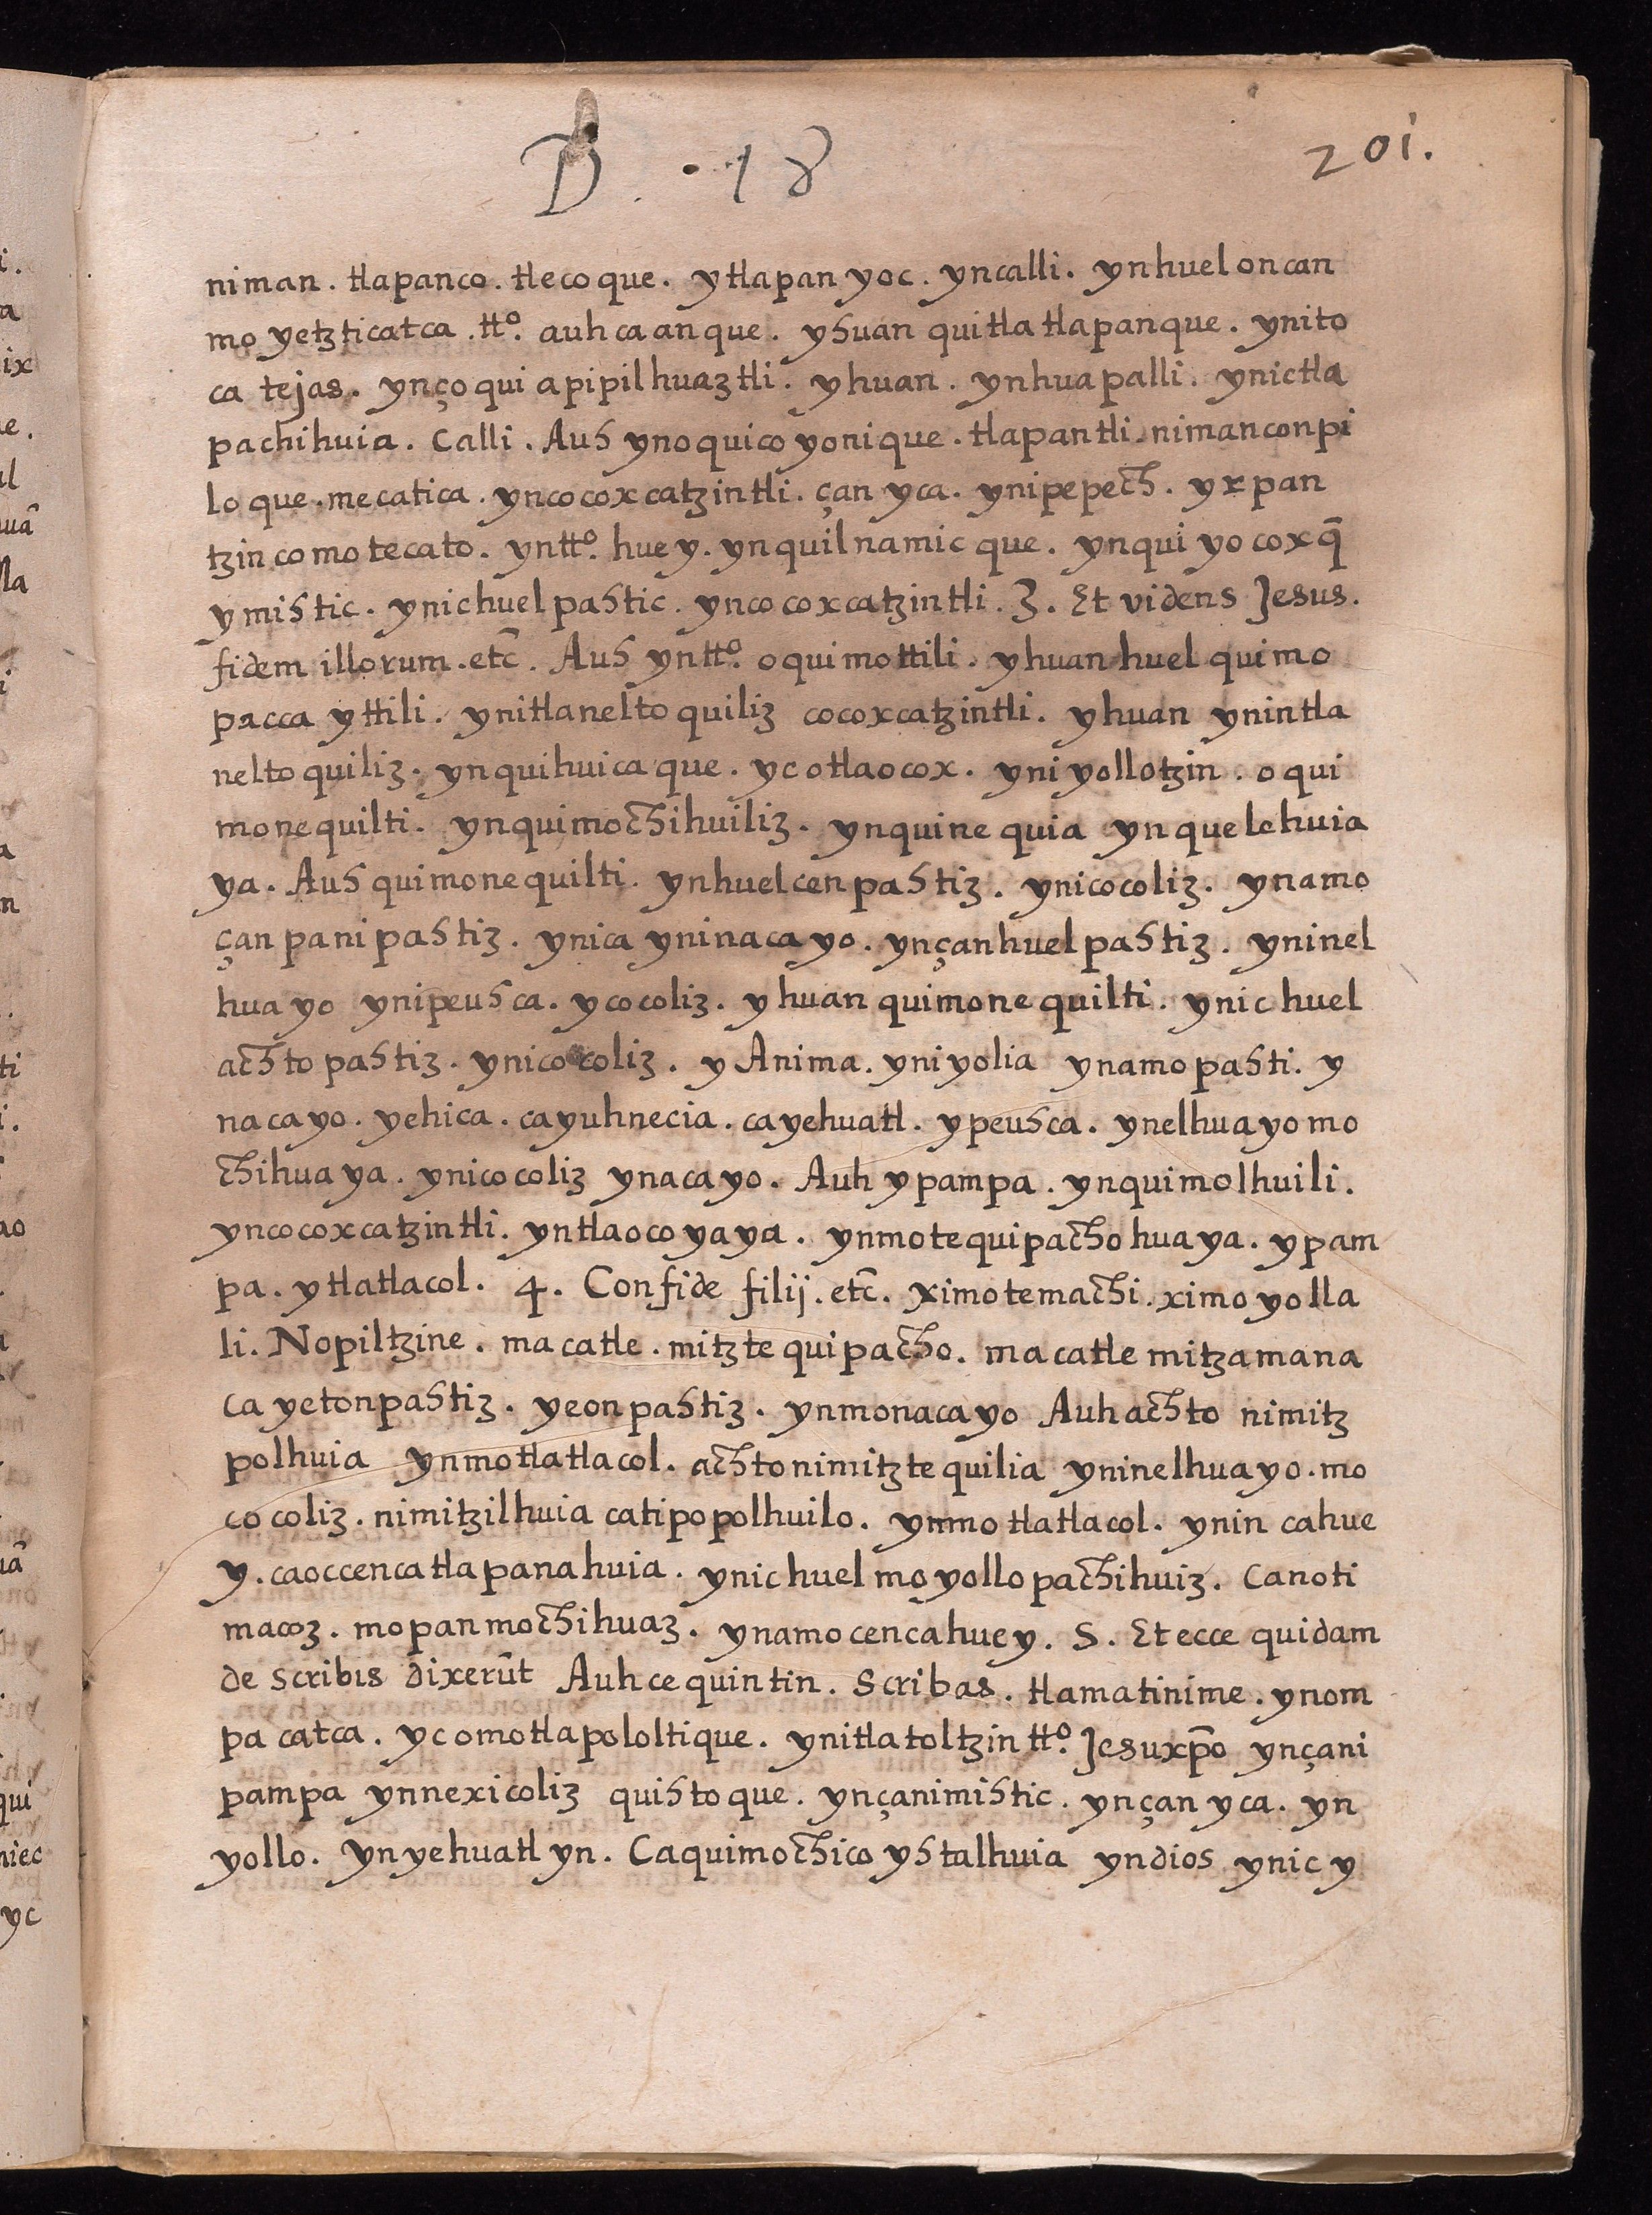 D. · 18
201.
niman. tlapanco. tlecoque. ytlapan yoc. yncalli. ynhuel oncan
mo yetzticatca. tto. auh caanque. yhuan quitlatlapanque. ynito
ca tejas. ynçoqui apipilhuaztli. yhuan. ynhuapalli. ynictla
pachihuia. Calli. Auh ynoquicoyonique. tlapantli. nimanconpi
loque. mecatica. yncocoxcatzintli. çan yca. ynipepech. yxpan
tzinco motecato. yntto. huey. ynquilnamicque. ynqui yocoxq̄
ymihtic. ynichuelpahtic. yncocoxcatzintli. 3. Et videns Jesus.
fidem illorum. etc̄. Auh yntto. oquimottili. yhuan huel quimo
pacca yttili. ynitlaneltoquiliz cocoxcatzintli. yhuan ynintla
neltoquiliz. ynquihuicaque. yc otlaocox. yni yollotzin. oqui
monequilti. ynquimochihuiliz. ynquinequia ynquelehuia
ya. Auh quimonequilti. ynhuelcenpahtiz. ynicocoliz. ynamo
çan panipahtiz. ynica yninacayo. ynçanhuelpahtiz. yninel
huayo ynipeuhca. ycocoliz. yhuan quimonequilti. ynic huel
achto pahtiz. ynicocoliz. y Anima. yni yolia ynamo pahti. y
nacayo. yehica. cayuhnecia. cayehuatl. ypeuhca. ynelhuayo mo
chihuaya. ynicocoliz ynacayo. Auh ypampa. ynquimolhuili.
yncocoxcatzintli. yntlaocoyaya. ynmotequipachohuaya. ypam
pa. ytlatlacol. 4. Confide filij. etc̄. ximotemachi. ximoyolla
li. Nopiltzine. macatle. mitztequipacho. macatle mitzamana
ca yetonpahtiz. yeonpahtiz. ynmonacayo Auh achto nimitz
polhuia ynmotlatlacol. achtonimitztequilia yninelhuayo. mo
cocoliz. nimitzilhuia catipopolhuilo. ynmo tlatlacol. ynin cahue
y. caoccencatlapanahuia. ynichuel moyollopachihuiz. Canoti
macoz. mopanmochihuaz. ynamocencahuey. 5. Et ecce quidam
de scribis dixerūt Auh cequintin. Scribas. tlamatinime. ynom
pa catca. yc omotlapololtique. ynitlatoltzin tto. Jesuxp̄o ynçani
pampa ynnexicoliz quihtoque. ynçanimihtic. ynçan yca. yn
yollo. ynyehuatl yn. Caquimochicoyhtalhuia yndios ynic y